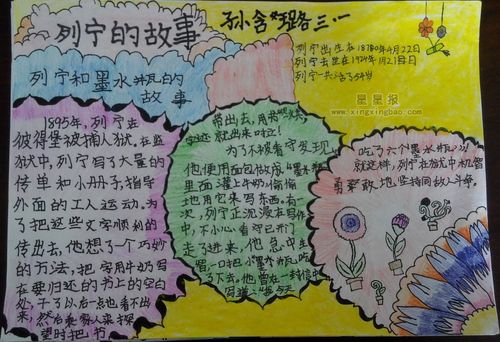 列宁的故事
孙含璐三.一
列宁出生在1870年4月22日
列宁去世在1924年1月21日
列宁一共活了54岁
列宁和墨水瓶的
故事
星星报
www.xingxingbao.com
1895年,列宁在
彼得堡被捕入狱。在监
狱中,列宁写了大量的
传单和小册子,指导
外面的工人运动。为
了把这些文字顺利的
传出去,他想了一个巧妙
的方法,把字用牛奶写
在要归还的书上的空白
处,干了以后一点也看不出
来,然后来家人来探
望时把书
带出去,用书
字迹就出来啦!
为了不被看守发现,
他便用面包做成"墨水瓶"
里面灌上牛奶,偷偷
地用它来写东西。有一
次,列宁正沉浸在写作
中,不小心看守已开门
走了进来,他急中生
智,一口把小墨水瓶吃
了下去,他曾在一封信中
写道:"今天
吃了六个墨水瓶。"
就这样,列宁在狱中机智
勇敢地,坚持同敌人斗争。